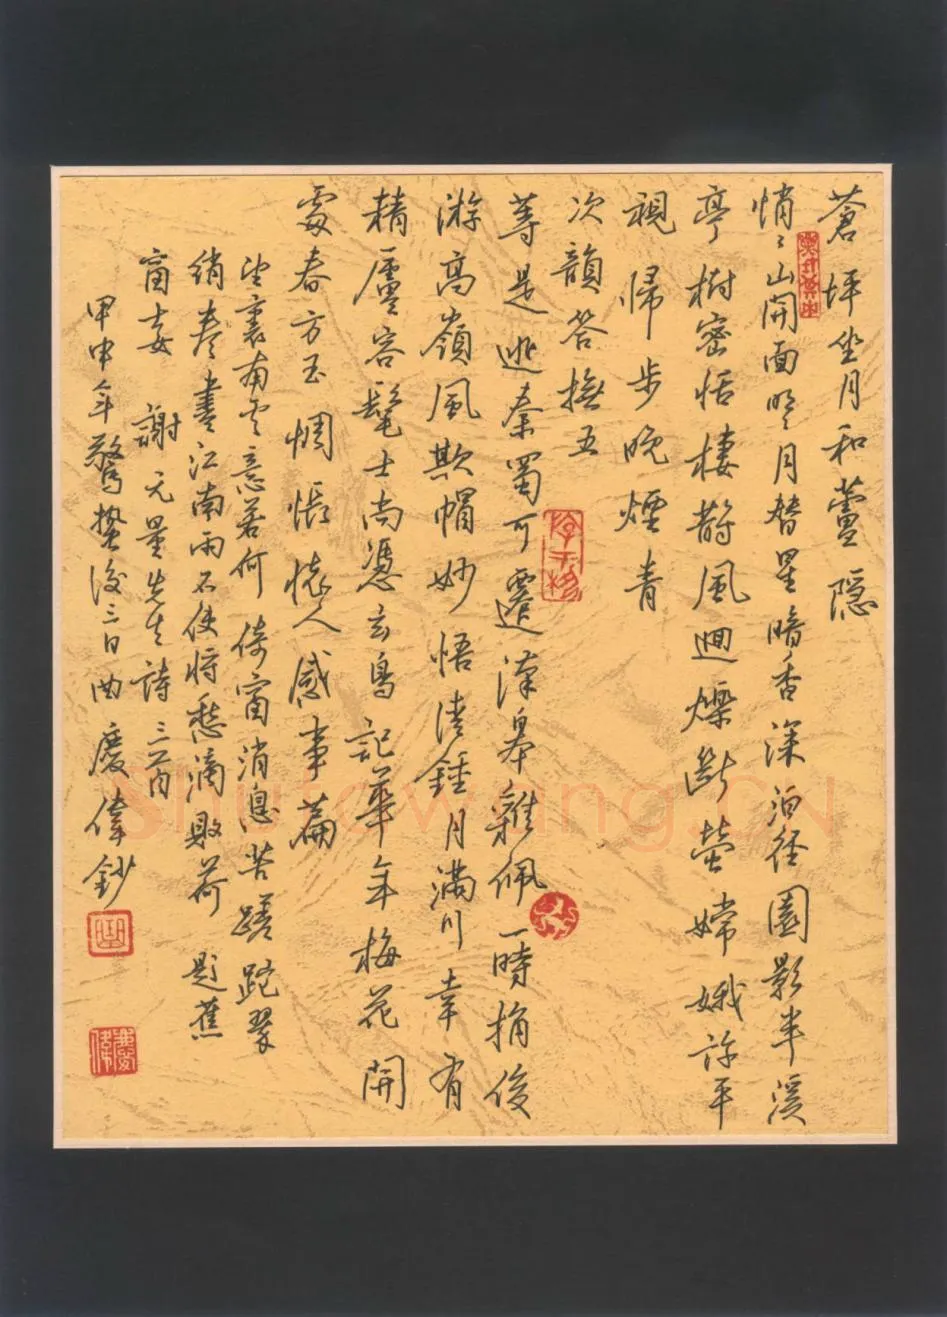 蒼坪坐月和蘆隱
悄〻山開面明月替星暗香深泊徑園影半溪
亭樹密恬棲鵲風迴爍斷螢嫦娥許平
視歸步晚煙青
次韻答撫五
等是逃秦蜀可遷漢皋雜佩一時捐俊
游高嶺風欺帽妙悟清鍾月滿川幸有
精廬容髦士尚憑玄鳥記華年梅花開
處春方至惆悵懷人感事篇
望裏南雲意若何倚窗消息苦蹉跎翠
綃卷盡江南雨不使將愁滴敗荷 題蕉
窗
謝元量先生詩三首
甲申年驚蟄後三日曲慶偉鈔
Shufawang.CN